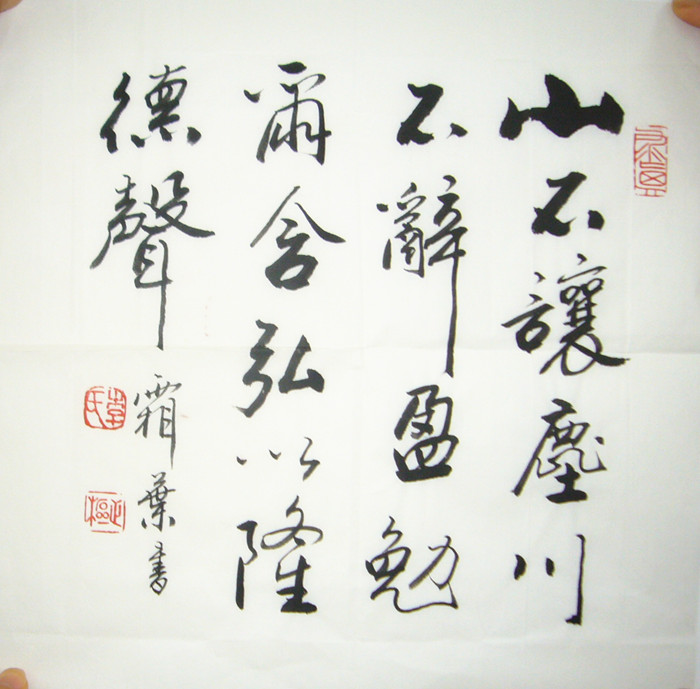 山不讓塵川
不辭盈勉
爾含弘以隆
德聲
霜葉書